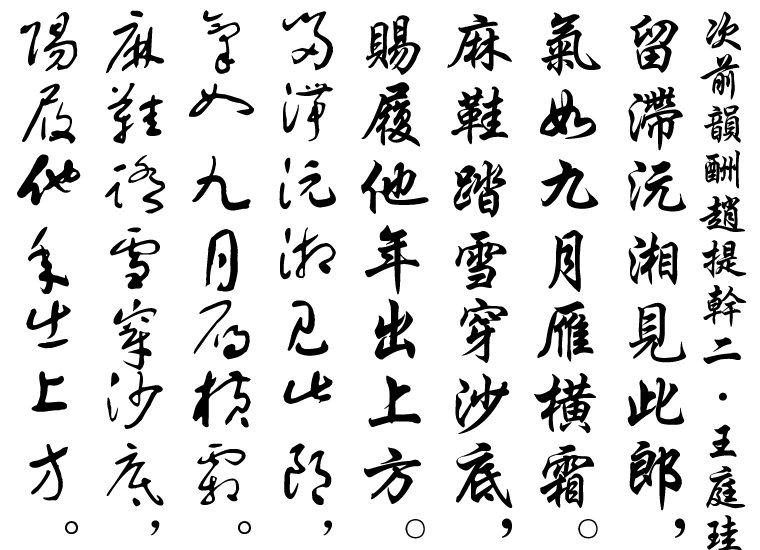 次前韻酬趙提幹二·王庭珪
留滯沅湘見此郎,
氣如九月雁橫霜。
麻鞋踏雪穿沙底,
賜履他年出上方。
留滯沅湘見此郎,
氣如九月雁橫霜。
麻鞋踏雪穿沙底,
賜履他年出上方。